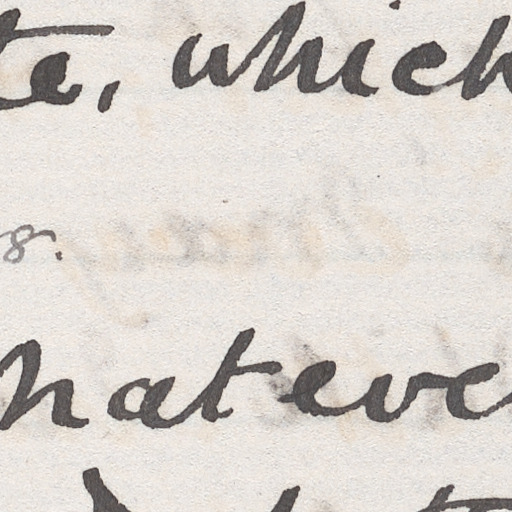 te, which
8.
hateve